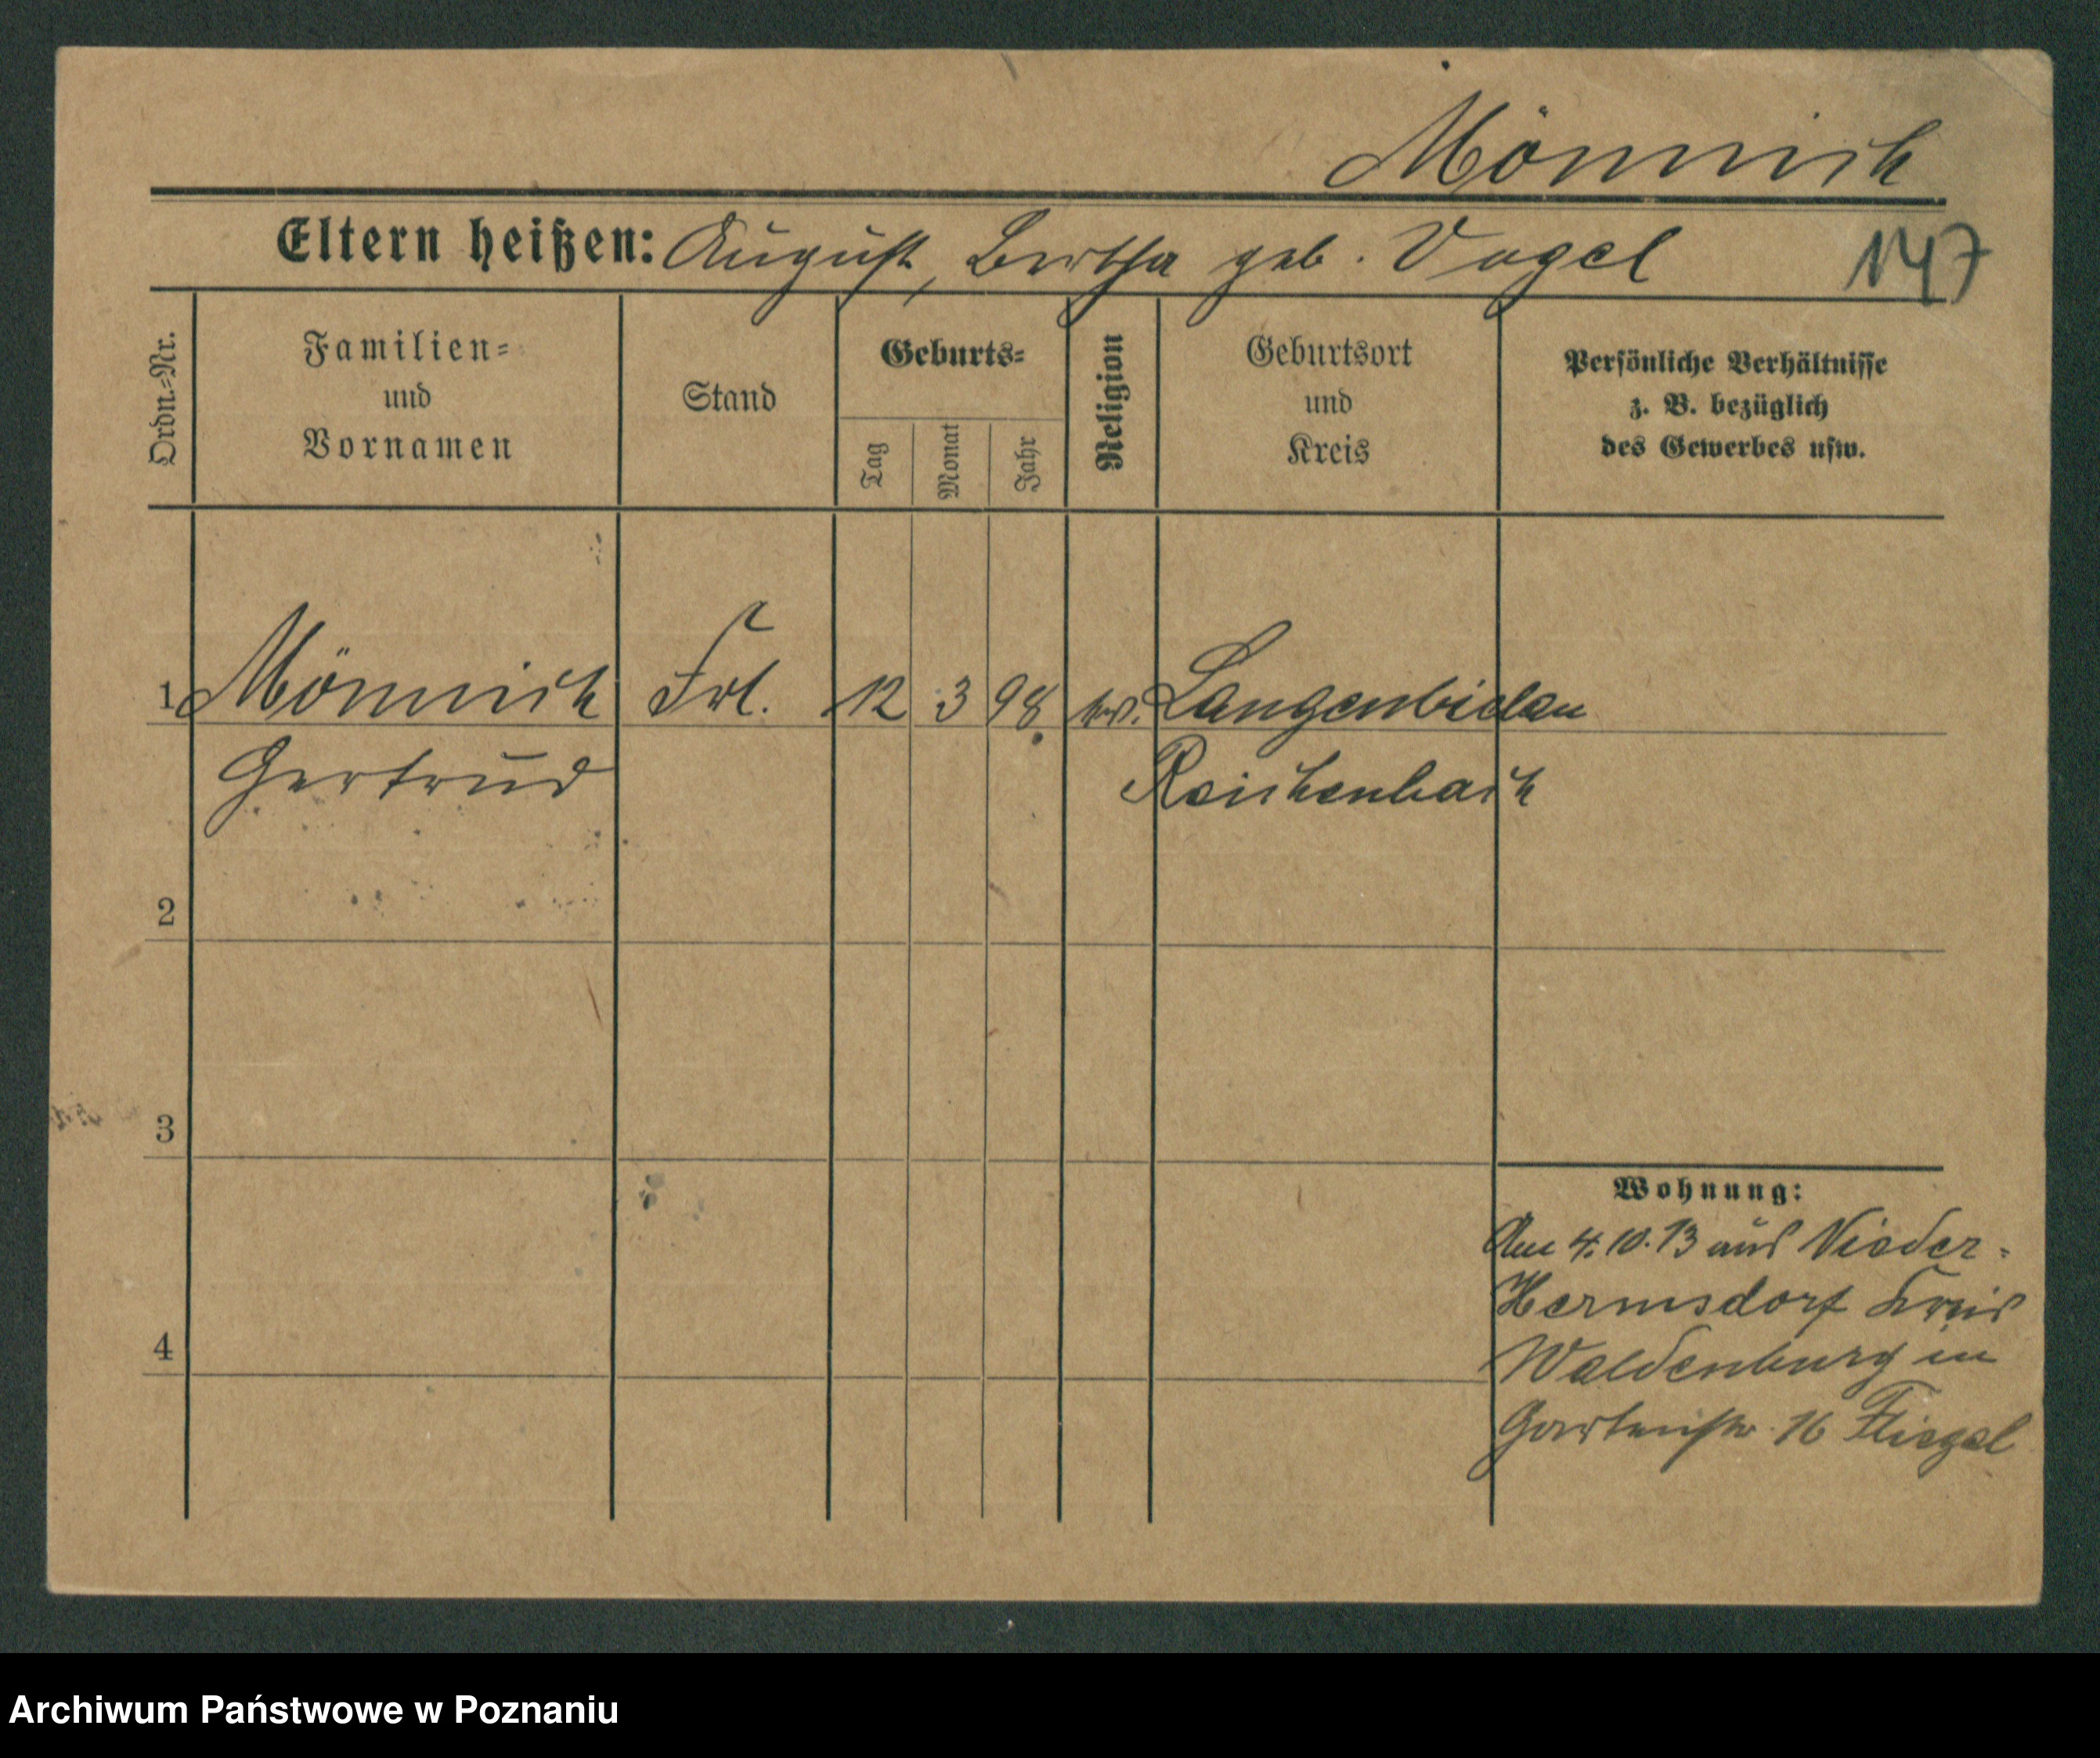 Mönnich
Eltern heißen: August, Bertha geb. Vogel
147
Ordn.-Nr.
Familien-
und
Vornamen
Stand
Geburts-
Tag
Monat
Jahr
Religion
Geburtsort
und
Kreis
Persönliche Verhältnisse
z. B. bezüglich
des Gewerbes usw.
1 Mönnich Frl. 12 3 98 Langenbielau
Gertrud Reichenbach
2
3
4
Wohnung:
Am 4.10.13 aus Nieder-
Hermsdorf Kreis
Waldenburg in
Gartenstr. 16 Fliegel
Archiwum Państwowe w Poznaniu